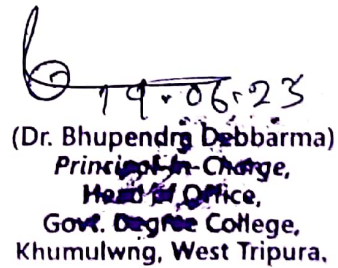 19.06.23
(Dr. Bhupendra Debbarma)
Principal-In-Charge,
Head of Office,
Govt. Degree College,
Khumulwng, West Tripura.